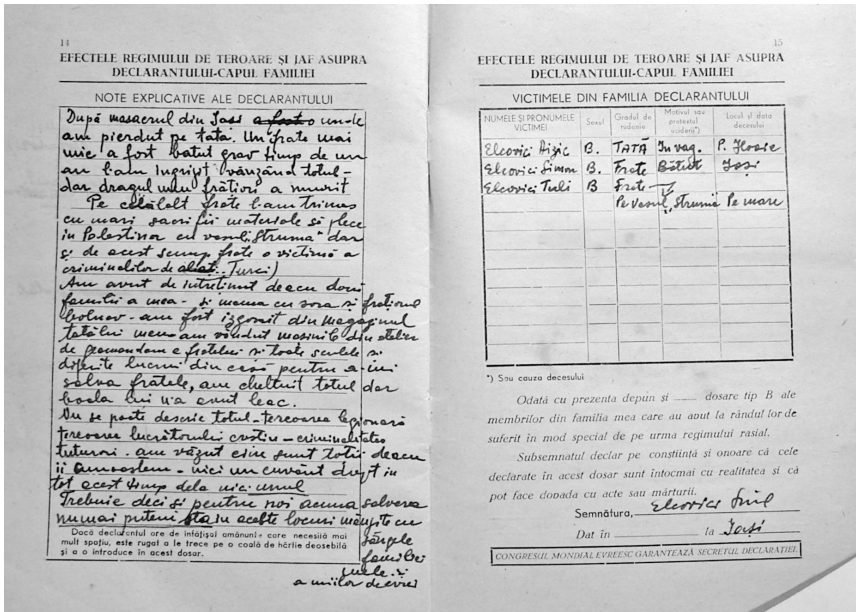 14
EFECTELE REGIMULUI DE TEROARE ȘI JAF ASUPRA
DECLARANTULUI-CAPUL FAMILIEI
NOTE EXPLICATIVE ALE DECLARANTULUI
După masacrul din Iași a fost o unde
am pierdut pe tata. Un frate mai
mic a fost bătut grav timp de un
an l-am îngrijit vânzând totul-
dar dragul meu frățior a murit
Pe celălalt frate l-am trimis
cu mari sacrificii materiale să plece
în Palestina cu vasul „Struma" dar
și de acest scump frate o victimă a
criminalilor de Turci)
Am avut de întreținut deacu două
familii a mea - și mama cu sora și frățiorul
bolnav - am fost izgonit din magazinul
tatălui meu am vândut mașinile din atelier
de a fratelui și toate sculele și
diferite lucruri din casă pentru a-i
salva fratele, am cheltuit totul dar
boala lui n'a avut leac.
Nu se poate descrie totul - teroarea legionară
teroarea lucrătorului creștin - criminalitatea
tuturor - am văzut cine sunt toți deacu
îi cunoaștem - nici un cuvânt drept în
tot acest timp dela nici unul
Trebuie deci și pentru noi acuma salvarea
numai putem sta în aceste locuri mânjite cu
sângele
familiei
mele și
a miilor de evrei
Dacă declarantul are de înfățișat amănunte care necesită mai
mult spațiu, este rugat a le trece pe o coală de hârtie deosebită
și a o introduce în acest dosar.
15
EFECTELE REGIMULUI DE TEROARE ȘI JAF ASUPRA
DECLARANTULUI-CAPUL FAMILIEI
VICTIMELE DIN FAMILIA DECLARANTULUI
NUMELE ȘI PRONUMELE VICTIMEI Sexul Gradul de rudenie Motivul sau pretextul uciderii*) Locul și data decesului
Elcovici Aizic B. TATĂ În vag. P. Iloaie
Elcovici Simon B. Frate Bătut Iași
Elcovici Tuli B Frate
Pe vasul „Struma Pe mare
*) Sau cauza decesului
Odată cu prezenta depun și dosare tip B ale
membrilor din familia mea care au avut la rândul lor de
suferit în mod special de pe urma regimului rasial.
Subsemnatul declar pe conștiință și onoare că cele
declarate în acest dosar sunt întocmai cu realitatea și că
pot face dovada cu acte sau mărturii.
Semnătura, Elcovici
Dat în la Iași
CONGRESUL MONDIAL EVREESC GARANTEAZĂ SECRETUL DECLARAȚIEI.